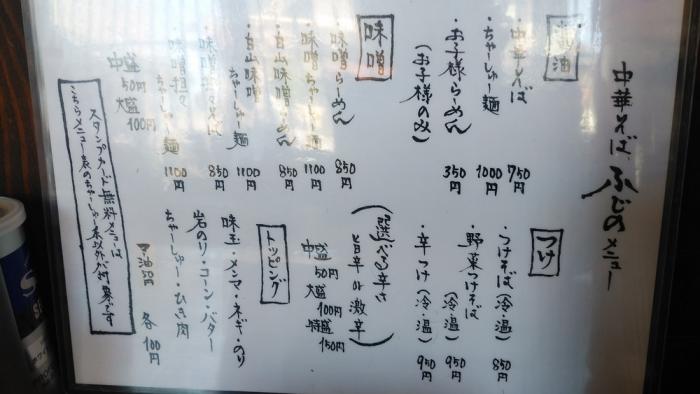 中華そば ふじのメニュー
醤油
・中華そば 750円
・ちゃーしゅー麺 1000円
・お子様らーめん 350円
(お子様のみ)
味噌
・味噌らーめん 850円
・味噌ちゃーしゅー麺 1100円
・白山味噌らーめん 850円
・白山味噌ちゃーしゅー麺 1100円
・味噌担々そば 850円
・味噌担々ちゃーしゅー麺 1100円
中盛 50円 大盛 100円
つけ
・つけそば(冷・温) 850円
・野菜つけそば(冷・温) 950円
・辛つけ(冷・温) 950円
(選べる辛さ
旨辛 or 激辛)
中盛 50円
大盛 100円
特盛 150円
トッピング
味玉・メンマ・ネギ・のり
岩のり・コーン・バター
ちゃーしゅー・ひき肉
各100円
スタンプカード無料メニューは
こちらメニュー表のちゃーしゅー系以外が対象です